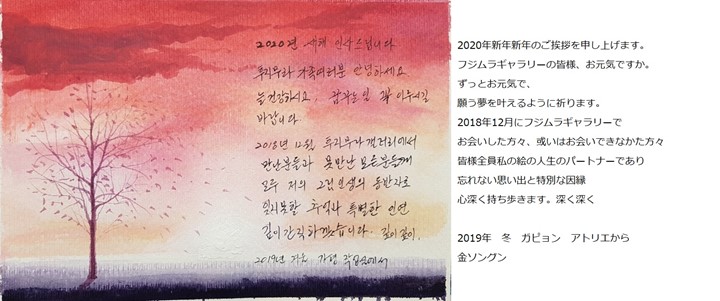 2020년 새해 인사드립니다
후지무라 가족여러분 안녕하세요
늘 건강하시고, 꿈 꾸는 일 꼭 이루시길
바랍니다
2018년 12월, 후지무라 갤러리에서
만난분들과 못만난 모든분들께
모두 저의 그림인생의 동반자로
잊지못할 추억과 특별한 인연
깊이 간직하겠습니다. 깊이 깊이.
2019년 겨울 가평 작업실에서
2020年新年新年のご挨拶を申し上げます。
フジムラギャラリーの皆様、お元気ですか。
ずっとお元気で、
願う夢を叶えるように祈ります。
2018年12月にフジムラギャラリーで
お会いした方々、或いはお会いできなかた方々
皆様全員私の絵の人生のパートナーであり
忘れない思い出と特別な因縁
心深く持ち歩きます。深く深く
2019年　冬　ガピョン　アトリエから
金ソングン